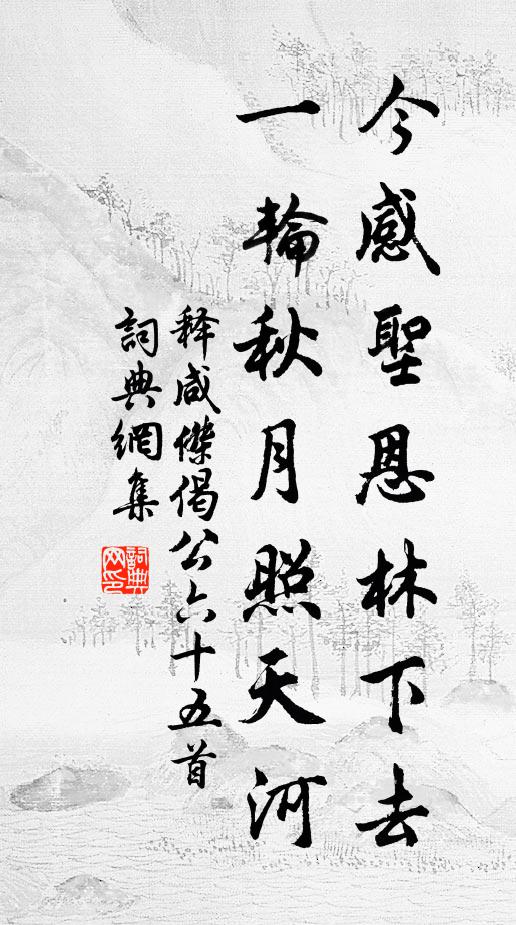 今感聖恩林下去
一輪秋月照天河
释咸傑偈公六十五首
詞典網集
詞典网印